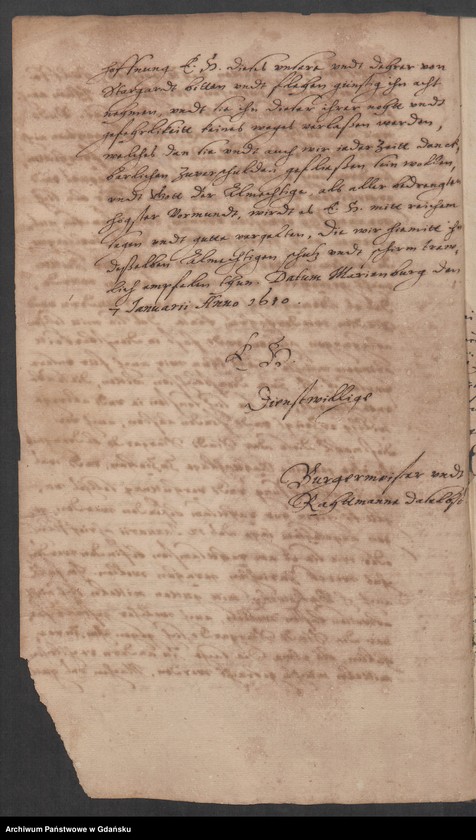 hoffnung E. W. dieses unsere undt derher von
Stargardt bitten undt flehen günstig in acht
nehmen, undt sie in dieser ihrer nohtt undt
gefehrlikeitt keines weges verlaßen werden,
welches den sie undt auch wir ieder Zeitt danck,
barlichen Zuverschulden gefließen sein wollen,
undt Gott der Almechtige, als aller bedrengten
högster Vormundt, wirdt es E. W. mitt reichem
segen undt gutte vergelten, Die wir hiemitt in
desselben Almechtigen schutz undt schirm trew,
lich empfelen thun. Datum Marienburg den
7 Januarii Anno 1610.
E W.
Dienstwillige
Burgermeister undt
Rahtmanne daselbst
Archiwum Państwowe w Gdańsku